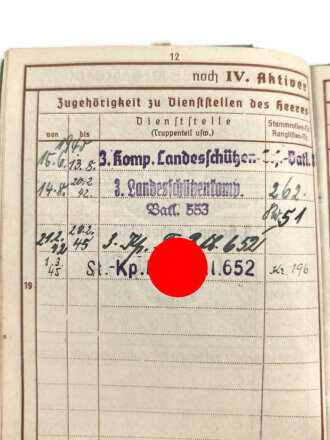 12
noch IV. Aktiver
Zugehörigkeit zu Dienststellen des Heeres
von bis Dienststelle (Truppenteil usw.) Stammrollen-Nr. Ranglisten-Nr.
1940
15.6. 13.8. 3. Komp. Landesschützen- Batl.
14.8. 42. 3. Landesschützenkomp. 262
Batl. 553 51
42 45 652
1.3. 45 St.-Kp. 652 196
19